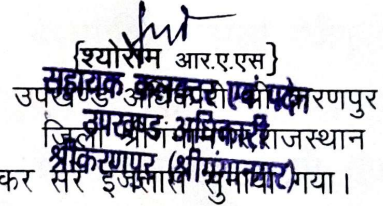 {श्योराम आर.ए.एस}
सहायक कलक्टर एवं पदेन
उपखण्ड अधिकारी श्रीकरणपुर
उपखण्ड अधिकारी
जिला श्रीगंगानगर राजस्थान
श्रीकरणपुर (श्रीगंगानगर)
कर सरे इजलास सुनाया गया।